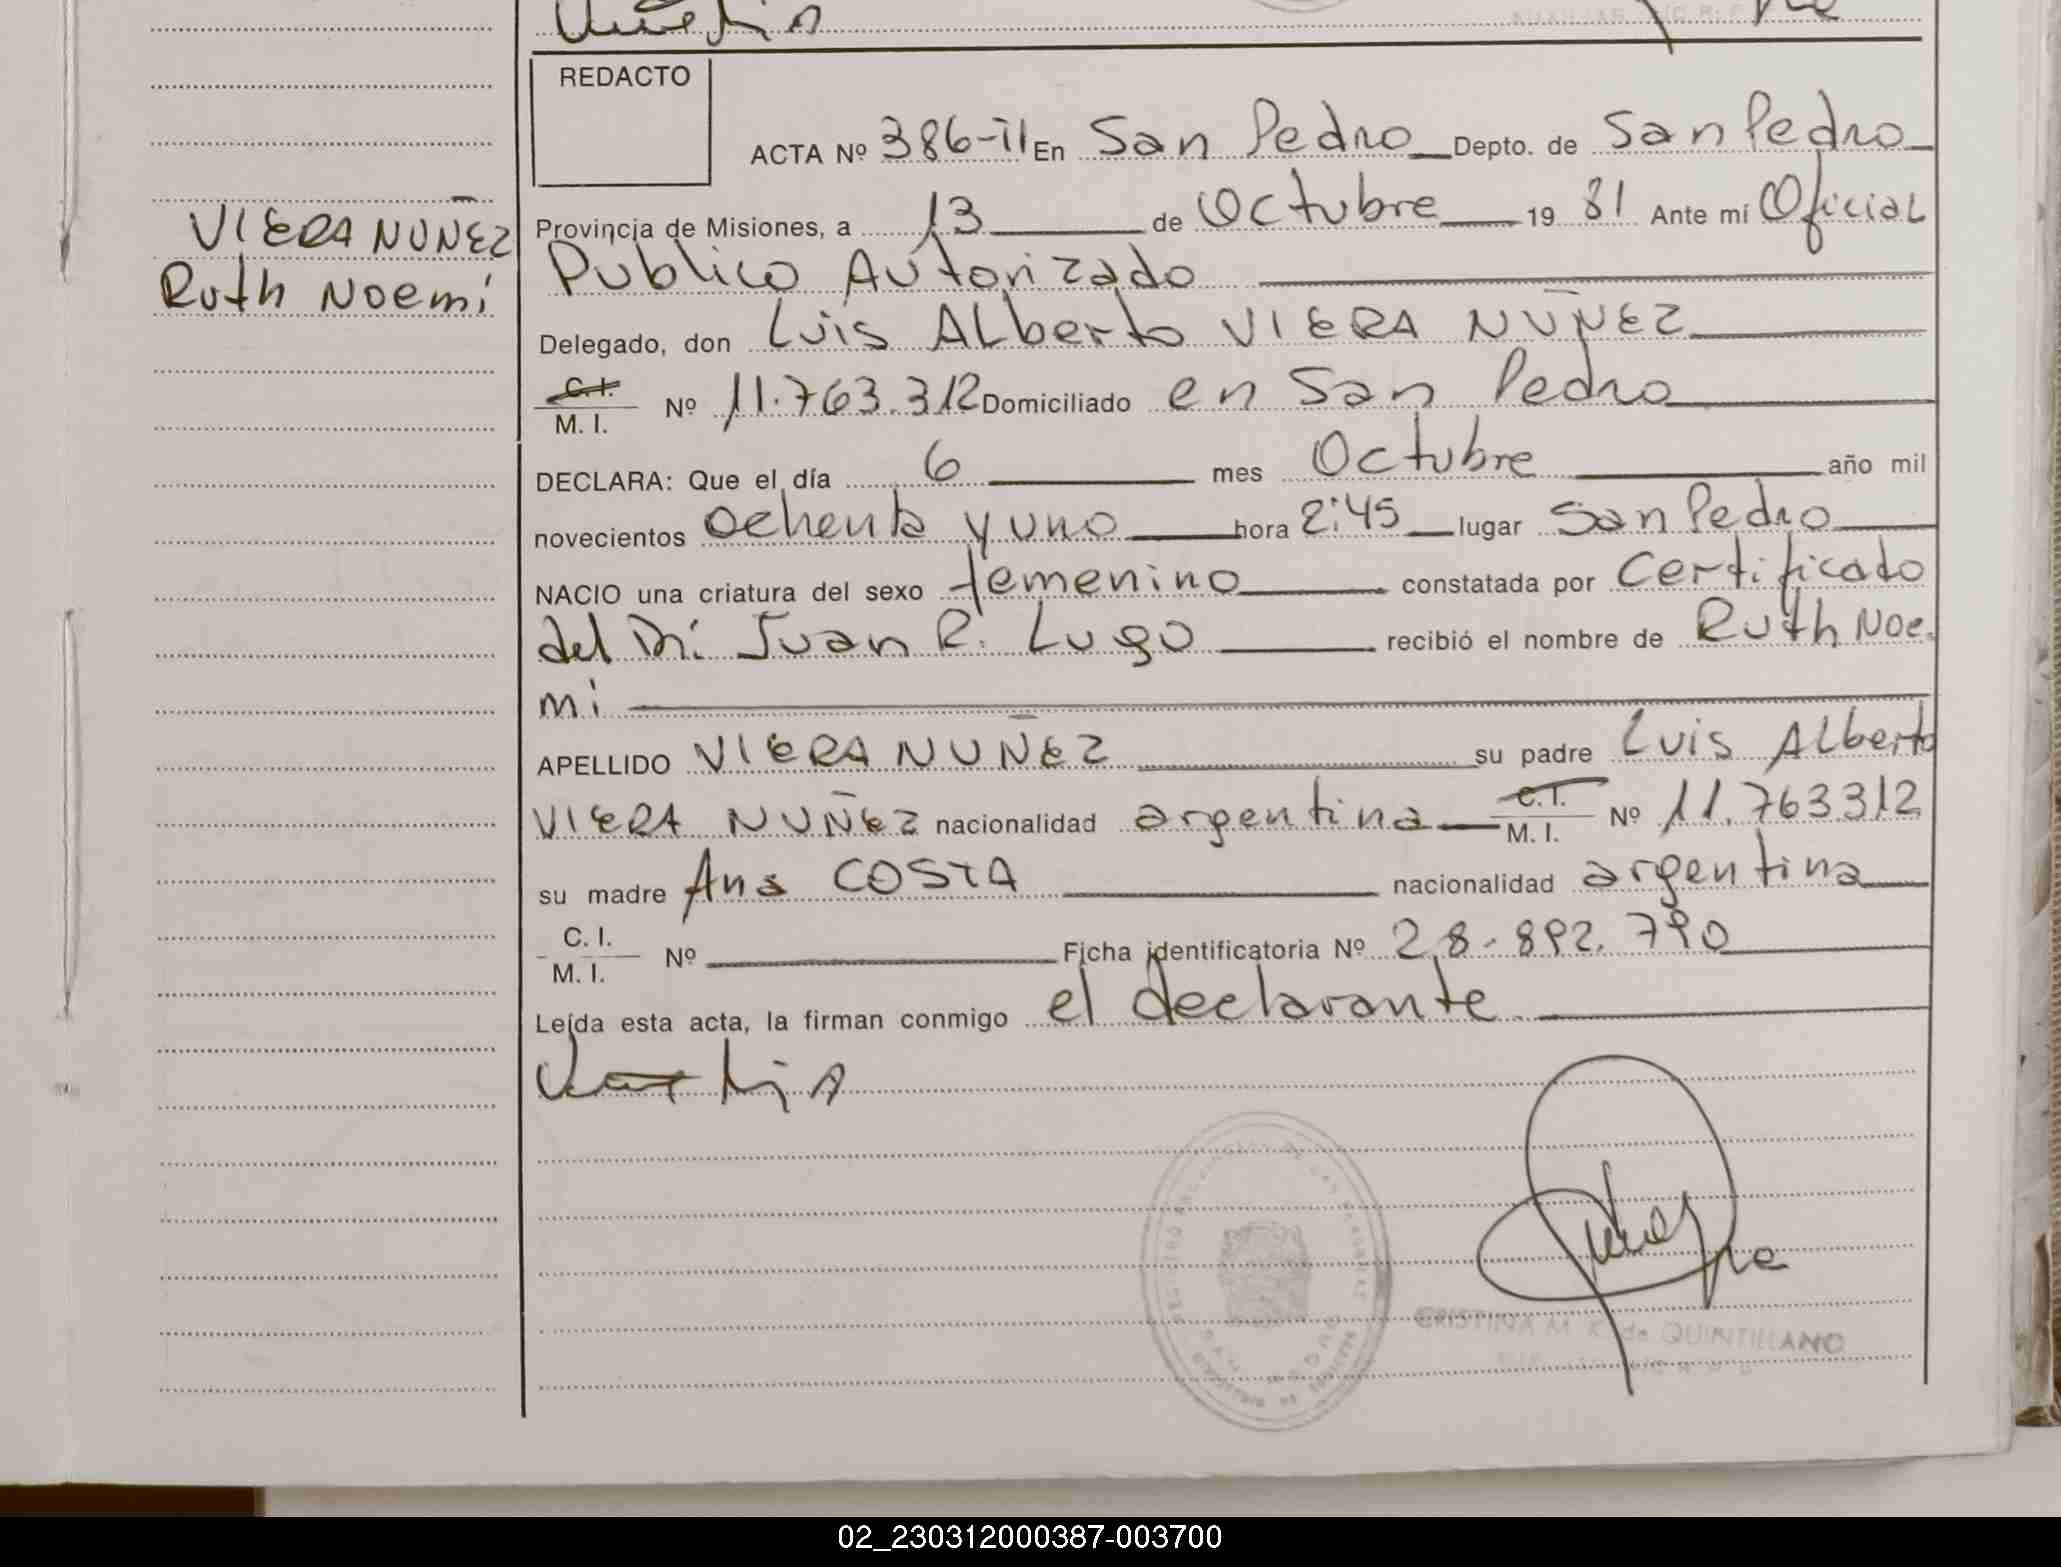 REDACTO
ACTA Nº 386-II En San Pedro Depto. de San Pedro
Provincia de Misiones, a 13 de Octubre 19 81 Ante mí Oficial
Publico Autorizado
VIERA NUÑEZ
Ruth Noemi
Delegado, don Luis Alberto VIERA NUÑEZ
C. I.
M. I. Nº 11.763.312 Domiciliado en San Pedro
DECLARA: Que el día 6 mes Octubre año mil
novecientos ochenta y uno hora 2:45 lugar San Pedro
NACIO una criatura del sexo femenino constatada por Certificado
del Dr. Juan R. Lugo recibió el nombre de Ruth Noe
mi
APELLIDO VIERA NUÑEZ su padre Luis Alberto
VIERA NUÑEZ nacionalidad argentina C. I.
M. I. Nº 11.763312
su madre Ana COSTA nacionalidad argentina
C. I.
M. I. Nº Ficha identificatoria Nº 28.892.790
Leída esta acta, la firman conmigo el declarante
CRISTINA M. K. de QUINTILLANO
02_230312000387-003700